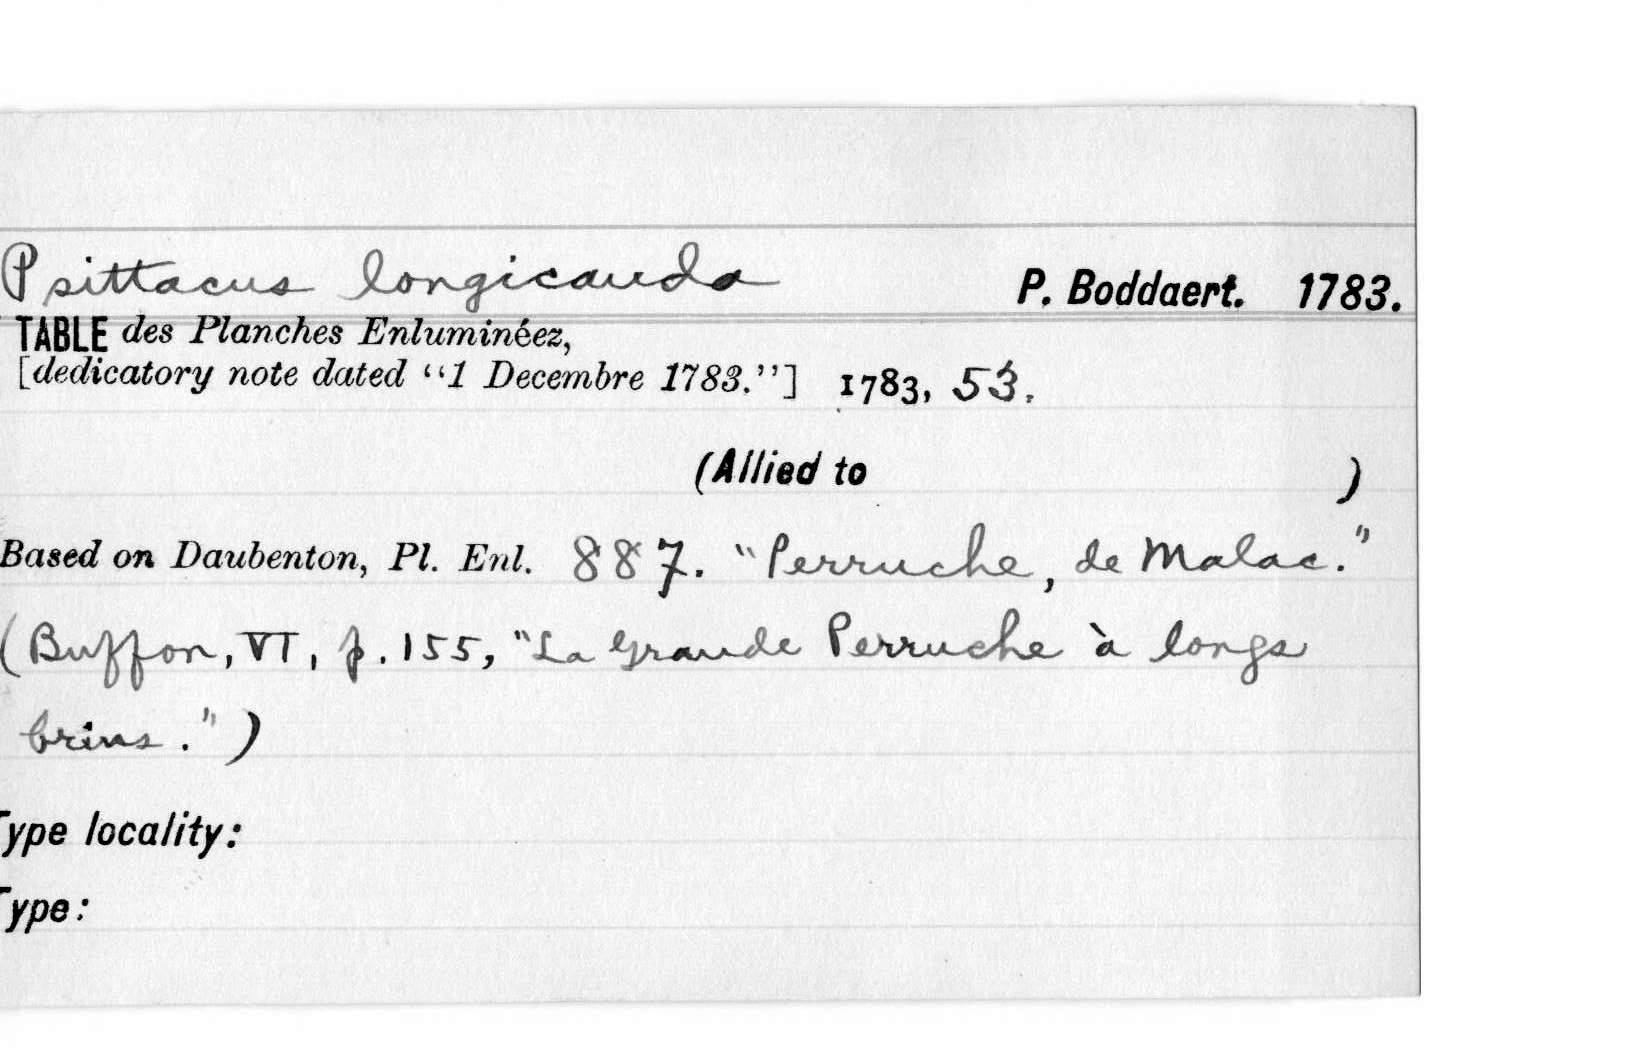 Psittacus longicauda P. Boddaert. 1783.
TABLE des Planches Enluminéez,
[dedicatory note dated “1 Decembre 1783.”] 1783, 53.
(Allied to )
Based on Daubenton, Pl. Enl. 887. "Perruche, de Malac."
(Buffon, VI, p. 155, "La Grande Perruche à longs
brins.")
Type locality:
Type: